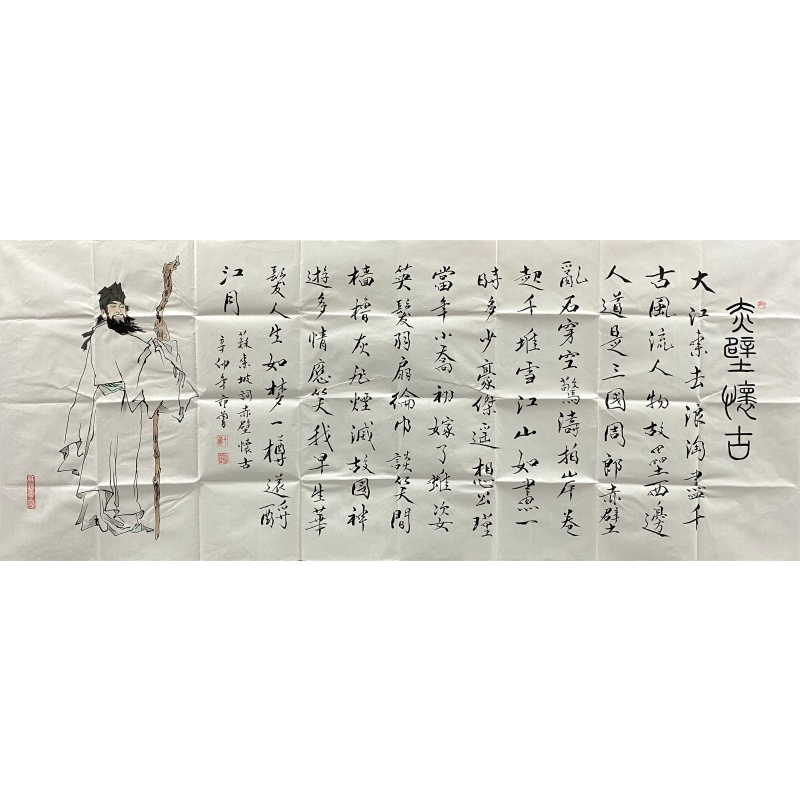 赤壁懷古
大江東去浪淘盡千
古風流人物故壘西邊
人道是三國周郎赤壁
亂石穿空驚濤拍岸卷
起千堆雪江山如畫一
時多少豪傑遥想公瑾
當年小喬初嫁了雄姿
英髮羽扇綸巾談笑間
檣櫓灰飛煙滅故國神
遊多情應笑我早生華
髮人生如梦一樽還酹
江月
蘇東坡詞赤壁懷古
辛卯年范曾